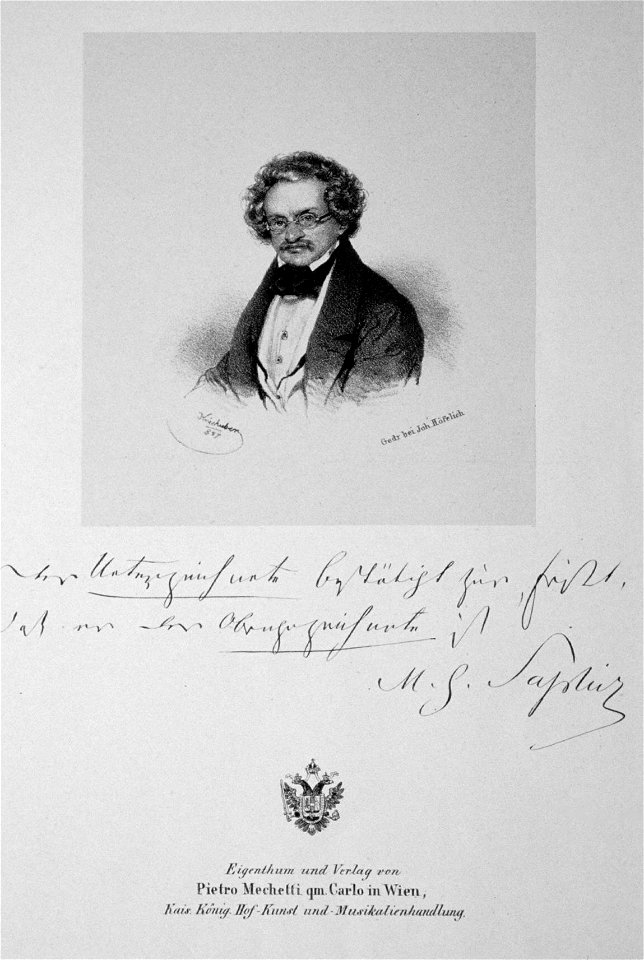 Kriehuber
Gedr. bei Joh. Höfelich
Der Unterzeichnete bestätigt
daß er der Obengezeichnete ist
M. G. Saphir
Eigenthum und Verlag von
Pietro Mechetti qm. Carlo in Wien,
Kais. König. Hof-Kunst und-Musikalienhandlung.